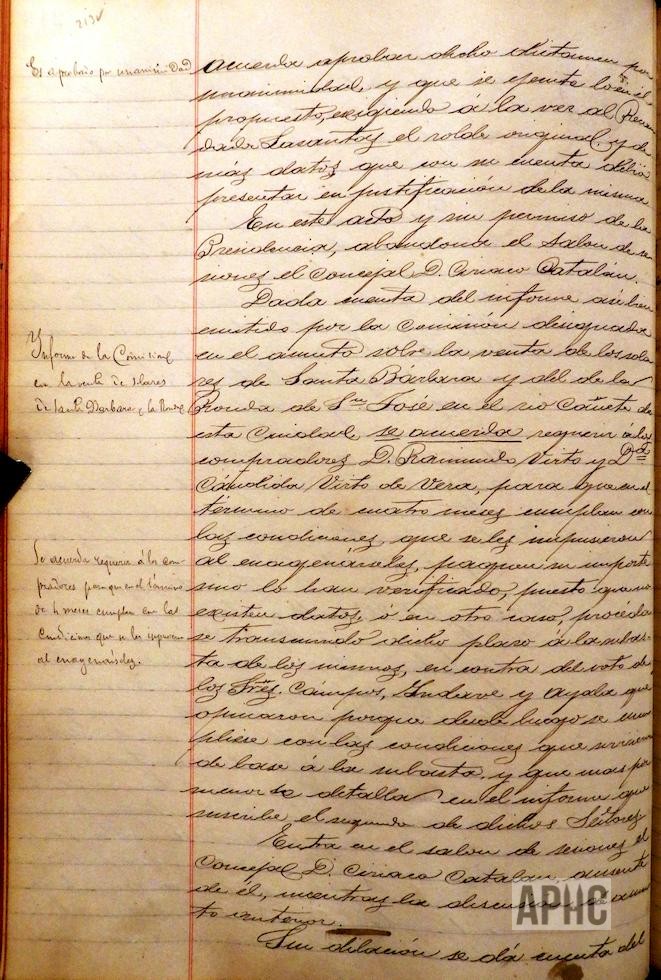 213v
Es aprobado por unanimidad
acuerda aprobar dicho dictamen por
unanimidad, y que se ejecute lo en él
propuesto, exigiendo á la vez al Recau
dador Lasantas el rolde original y de
más datos que con su cuenta debió
presentar en justificación de la misma
En este acto y su permiso de la
Presidencia, abandona el salon de se
siones el Concejal D. Ciriaco Catalán.
Dada cuenta del informe asi bien
emitido por la Comisión designada
Informe de la Comisión
en la venta de solares
de Santa Barbara y la Ronda
en el asunto sobre la venta de los sola
res de Santa Bárbara y del de la
Ronda de Sn José en el rio Cañete de
esta Ciudad, se acuerda requerir á los
compradores D. Raimundo Virto y Dª
Cándida Virto de Vera, para que en el
término de cuatro meses cumplan con
las condiciones, que se les impusieron
Se acuerda requerir á los com-
pradores para que en el término
de 4 meses cumplan con las
condiciones que se les impusieron
al enagenárselos.
al enagenárseles, paguen su importe
sino lo han verificado, puesto que no
existen datos, ó en otro caso, proceda
se transcurrido dicho plazo á la subas-
ta de los mismos, en contra del voto de
los Sres. Cámpos, Yndave y Ayala que
opinaron porque desde luego se cum
pliese con las condiciones que sirvieron
de base á la subasta y que mas por
menor se detalla en el informe que
suscribe el segundo de dichos Señores
Entra en el salon de sesiones el
Concejal D. Ciriaco Catalan, ausente
de él, mientras la discusion del asun
to anterior.
Sin dilación se dá cuenta del
APHC